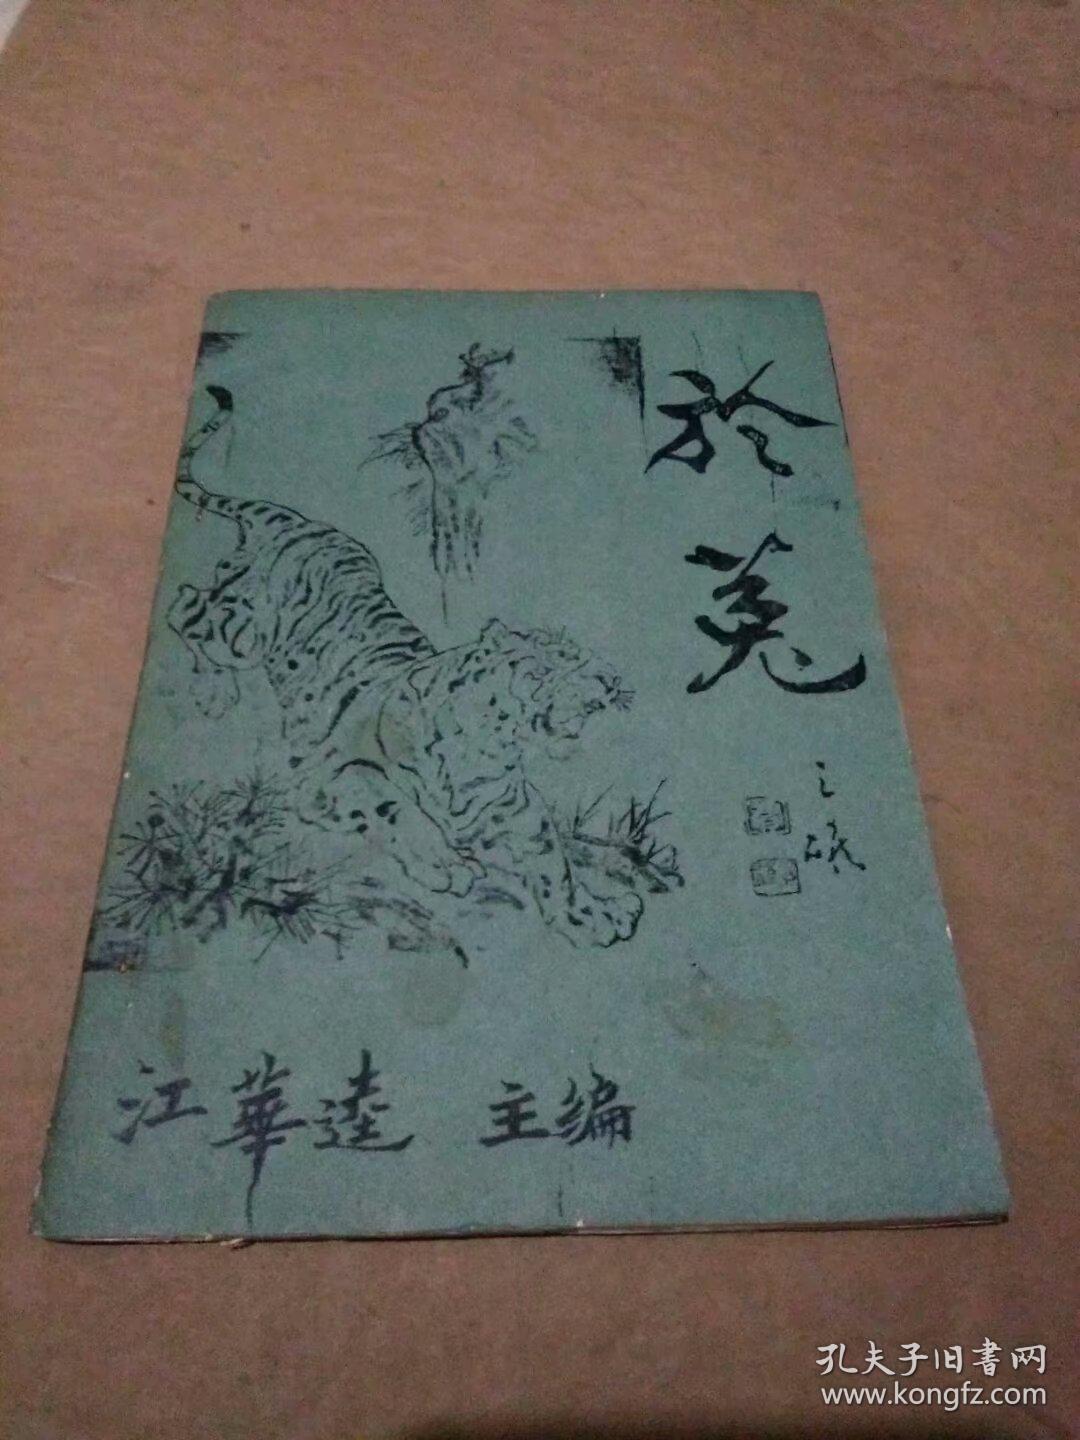 於菟
江華逵 主编
孔夫子旧書网
www.kongfz.com